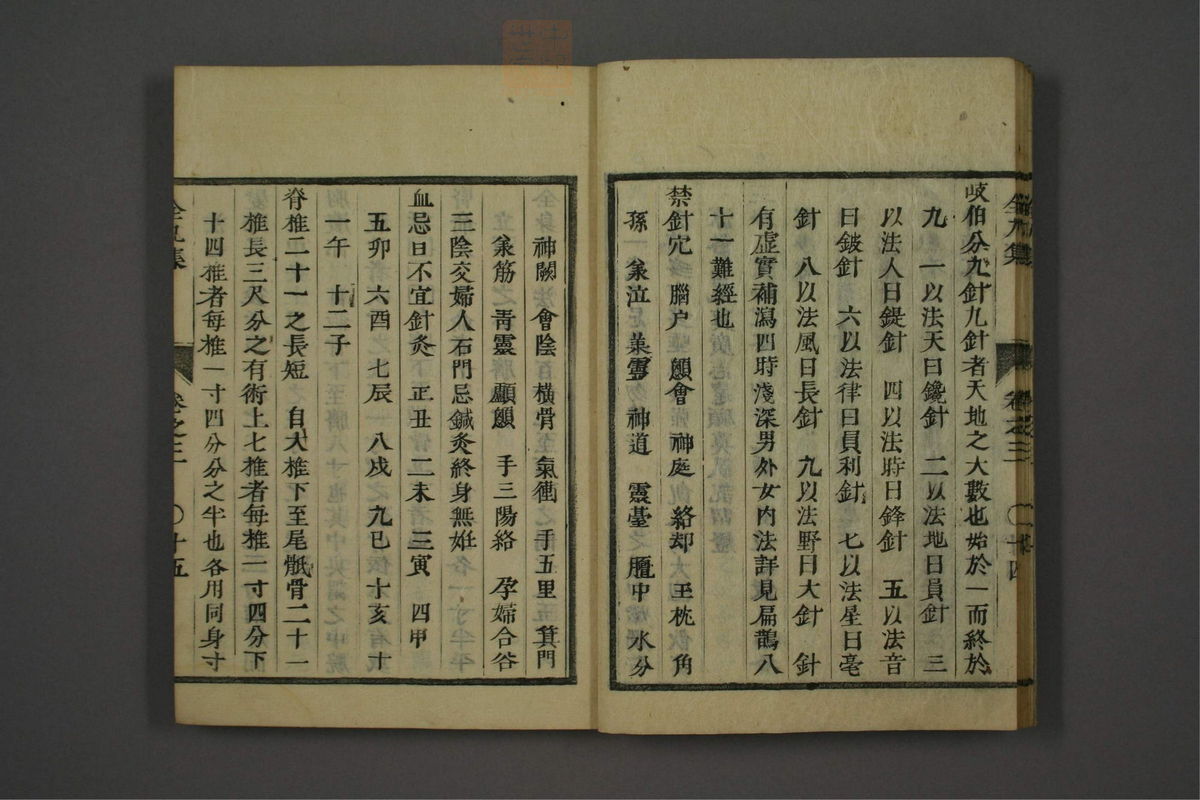 岐伯分九針九針者天地之大數也始於一而終於
九　一以法天曰鑱針　二以法地曰員針　三
以法人曰鍉針　四以法時曰鋒針　五以法音
曰鈹針　六以法律曰員利針　七以法星曰毫
針　八以法風曰長針　九以法野曰大針　針
有虛實補瀉四時淺深男外女內法詳見扁鵲八
十一難經也
禁針穴　腦户　顖會　神庭　絡却　玉枕　角
孫　　泣　　靈　神道　靈臺　膻中　水分
卷之三
神闕　會陰　橫骨　氣衝　手五里　箕門
筋　青靈　顱顖　手三陽絡　孕婦合谷
三陰交婦人石門忌鍼灸終身無姙
血忌日不宜針灸　正丑　二未　三寅　四申
五卯　六酉　七辰　八戌　九巳　十亥　十
一午　十二子
脊椎二十一之長短　自大椎下至尾骶骨二十一
椎長三尺分之有術上七椎者每椎一寸四分下
十四椎者每椎一寸四分分之半也各用同身寸
卷之三　〇　十五